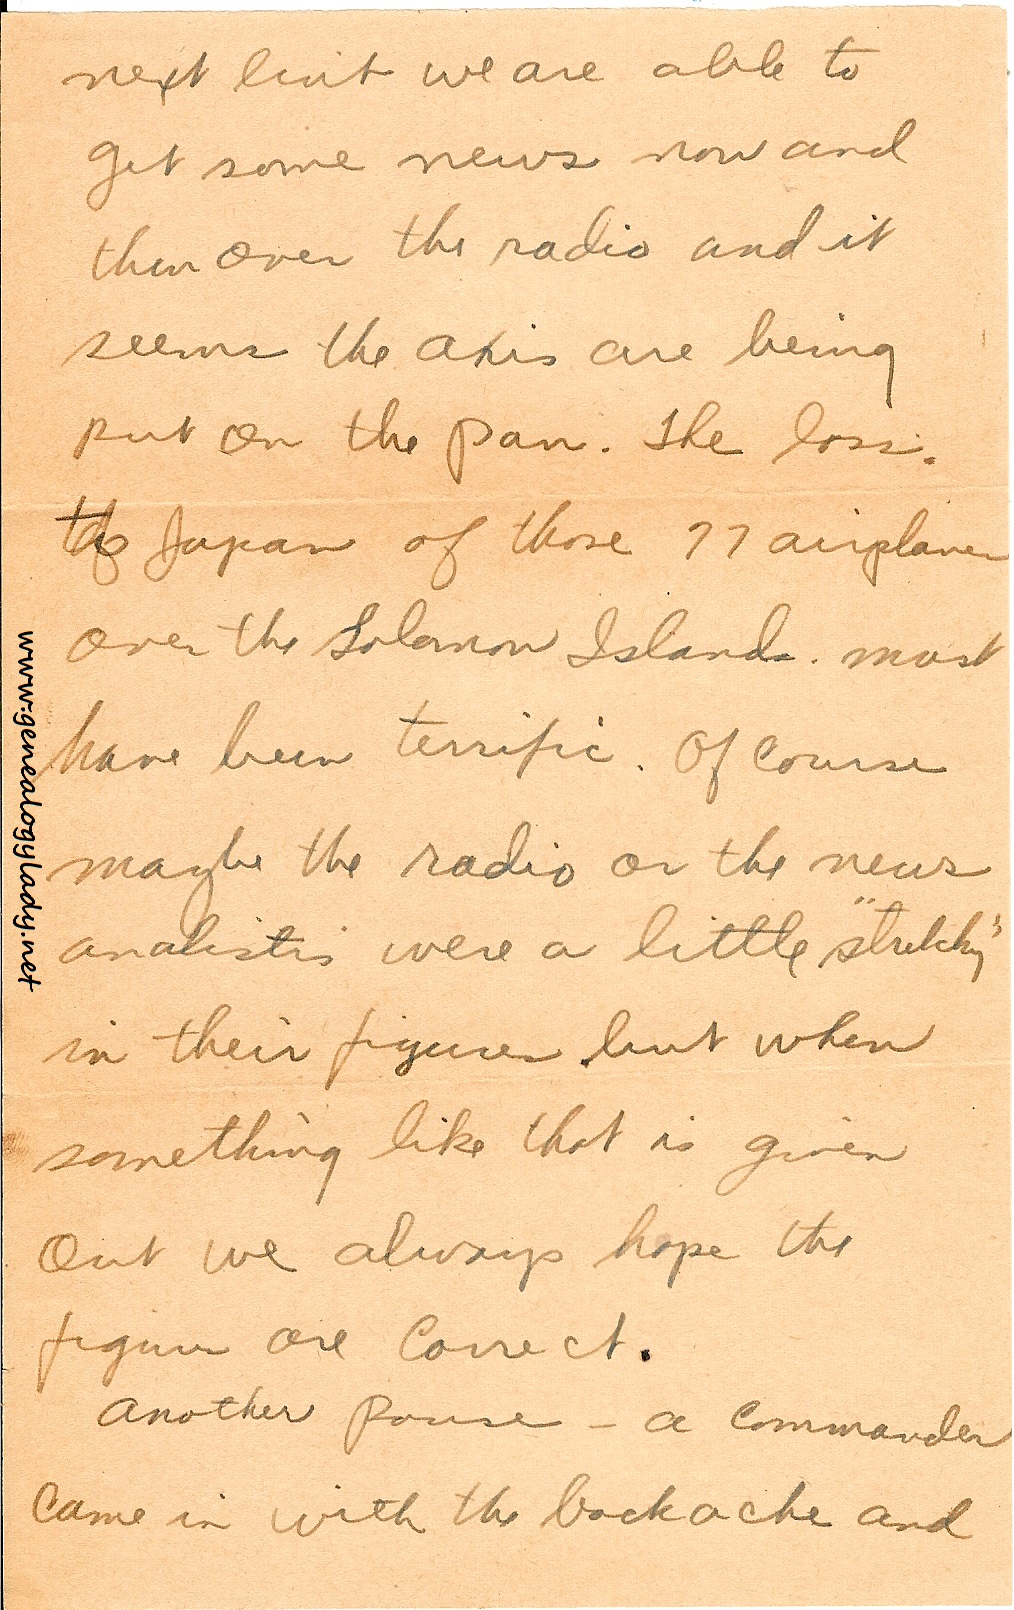 next but we are able to
get some news now and
then over the radio and it
seems the axis are being
put on the pan. The loss.
to Japan of those 77 airplanes
over the Solomon Islands. must
have been terrific. Of course
maybe the radio or the news
analistis were a little "stretchy"
in their figures but when
something like that is given
out we always hope the
figures are correct.
another pause - a commander
came in with the backache and
www.genealogylady.net